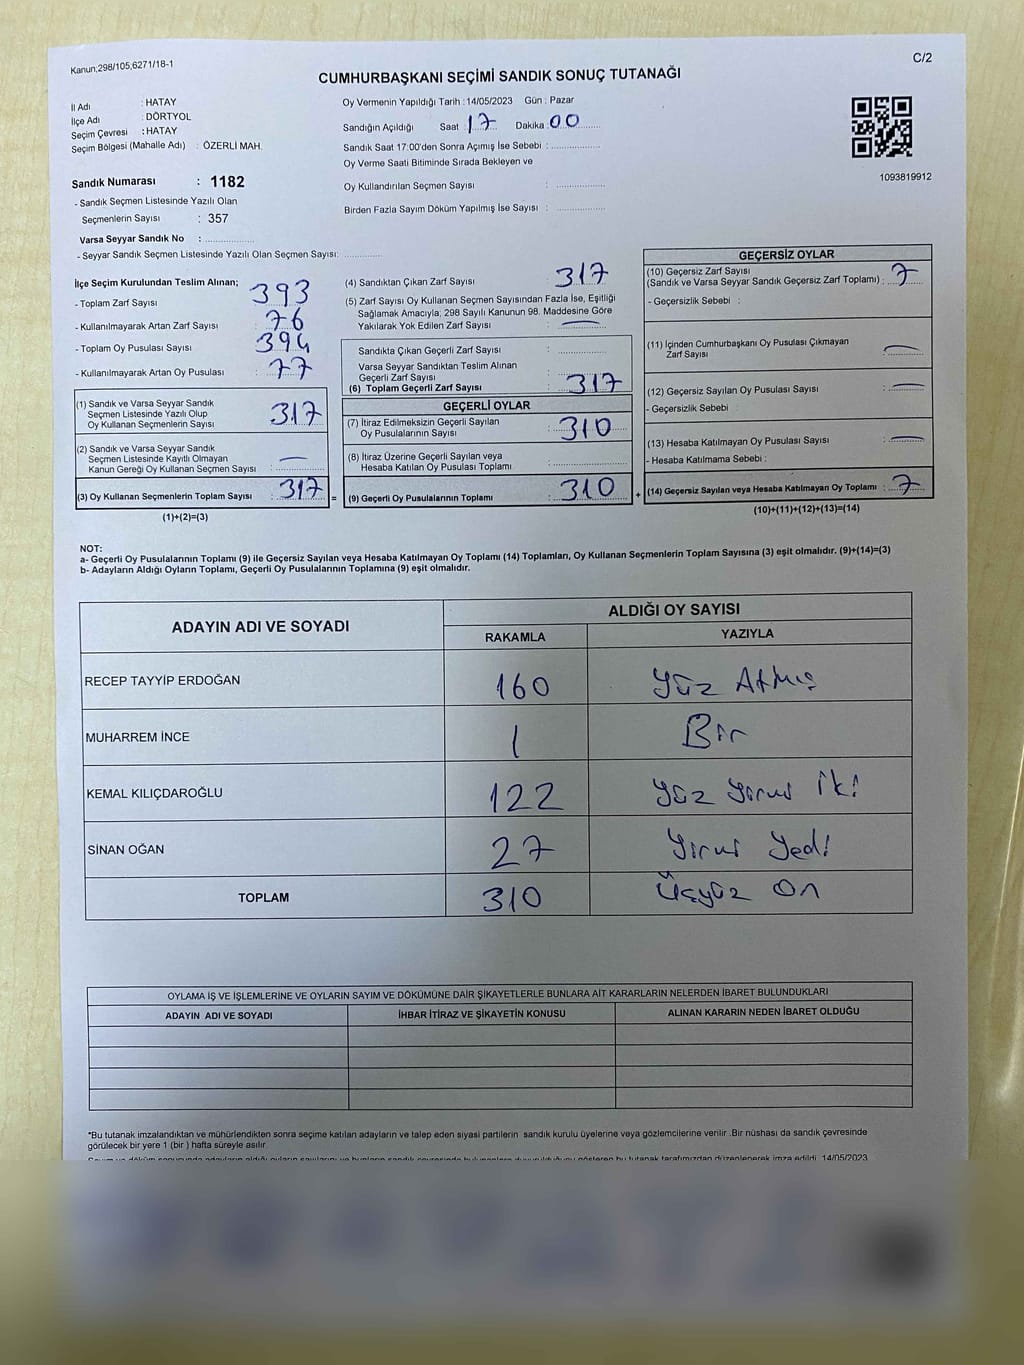 Kanun;298/105,6271/18-1
C/2
CUMHURBAŞKANI SEÇİMİ SANDIK SONUÇ TUTANAĞI
İl Adı : HATAY
İlçe Adı : DÖRTYOL
Seçim Çevresi : HATAY
Seçim Bölgesi (Mahalle Adı) : ÖZERLİ MAH.
Oy Vermenin Yapıldığı Tarih :14/05/2023 Gün : Pazar
Sandığın Açıldığı Saat : 17 Dakika : 00
Sandık Saat 17:00'den Sonra Açımış İse Sebebi :
Oy Verme Saati Bitiminde Sırada Bekleyen ve
Oy Kullandırılan Seçmen Sayısı :
Birden Fazla Sayım Döküm Yapılmış İse Sayısı :
1093819912
Sandık Numarası : 1182
- Sandık Seçmen Listesinde Yazılı Olan
Seçmenlerin Sayısı : 357
Varsa Seyyar Sandık No :
- Seyyar Sandık Seçmen Listesinde Yazılı Olan Seçmen Sayısı:
İlçe Seçim Kurulundan Teslim Alınan;
- Toplam Zarf Sayısı 393
- Kullanılmayarak Artan Zarf Sayısı : 76
- Toplam Oy Pusulası Sayısı : 394
- Kullanılmayarak Artan Oy Pusulası : 77
(1) Sandık ve Varsa Seyyar Sandık
Seçmen Listesinde Yazılı Olup
Oy Kullanan Seçmenlerin Sayısı : 317
(2) Sandık ve Varsa Seyyar Sandık
Seçmen Listesinde Kayıtlı Olmayan
Kanun Gereği Oy Kullanan Seçmen Sayısı : —
(3) Oy Kullanan Seçmenlerin Toplam Sayısı : 317 =
(1)+(2)=(3)
(4) Sandıktan Çıkan Zarf Sayısı : 317
(5) Zarf Sayısı Oy Kullanan Seçmen Sayısından Fazla İse, Eşitliği
Sağlamak Amacıyla; 298 Sayılı Kanunun 98. Maddesine Göre
Yakılarak Yok Edilen Zarf Sayısı : —
Sandıkta Çıkan Geçerli Zarf Sayısı :
Varsa Seyyar Sandıktan Teslim Alınan
Geçerli Zarf Sayısı :
(6) Toplam Geçerli Zarf Sayısı 317
GEÇERLİ OYLAR
(7) İtiraz Edilmeksizin Geçerli Sayılan
Oy Pusulalarının Sayısı : 310
(8) İtiraz Üzerine Geçerli Sayılan veya
Hesaba Katılan Oy Pusulası Toplamı :
(9) Geçerli Oy Pusulalarının Toplamı : 310 +
GEÇERSİZ OYLAR
(10) Geçersiz Zarf Sayısı
(Sandık ve Varsa Seyyar Sandık Geçersiz Zarf Toplamı) : 7
- Geçersizlik Sebebi :
(11) İçinden Cumhurbaşkanı Oy Pusulası Çıkmayan
Zarf Sayısı : —
(12) Geçersiz Sayılan Oy Pusulası Sayısı : —
- Geçersizlik Sebebi :
(13) Hesaba Katılmayan Oy Pusulası Sayısı : —
- Hesaba Katılmama Sebebi :
(14) Geçersiz Sayılan veya Hesaba Katılmayan Oy Toplamı : 7
(10)+(11)+(12)+(13)=(14)
NOT:
a- Geçerli Oy Pusulalarının Toplamı (9) ile Geçersiz Sayılan veya Hesaba Katılmayan Oy Toplamı (14) Toplamları, Oy Kullanan Seçmenlerin Toplam Sayısına (3) eşit olmalıdır. (9)+(14)=(3)
b- Adayların Aldığı Oyların Toplamı, Geçerli Oy Pusulalarının Toplamına (9) eşit olmalıdır.
ADAYIN ADI VE SOYADI ALDIĞI OY SAYISI
RAKAMLA YAZIYLA
RECEP TAYYİP ERDOĞAN 160 Yüz Atmış
MUHARREM İNCE 1 Bir
KEMAL KILIÇDAROĞLU 122 Yüz Yirmi İki
SİNAN OĞAN 27 Yirmi Yedi
TOPLAM 310 Üçyüz On
OYLAMA İŞ VE İŞLEMLERİNE VE OYLARIN SAYIM VE DÖKÜMÜNE DAİR ŞİKAYETLERLE BUNLARA AİT KARARLARIN NELERDEN İBARET BULUNDUKLARI
ADAYIN ADI VE SOYADI İHBAR İTİRAZ VE ŞİKAYETİN KONUSU ALINAN KARARIN NEDEN İBARET OLDUĞU
*Bu tutanak imzalandıktan ve mühürlendikten sonra seçime katılan adayların ve talep eden siyasi partilerin sandık kurulu üyelerine veya gözlemcilerine verilir .Bir nüshası da sandık çevresinde
görülecek bir yere 1 (bir ) hafta süreyle asılır
tarafımızdan düzenlenerek imza edildi. 14/05/2023